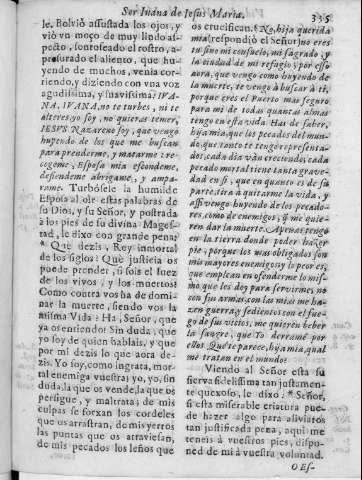 Sor Iuana de Jesus Maria.
335
le. Bolviò assustada los ojos, y
viò vn moço de muy lindo as-
pecto, sonroseado el rostro, a-
presurado el aliento, que hu-
yendo de muchos, venia cor-
riendo, y diziendo con vna voz
agudissima, y suavissima: IVA-
NA, IVANA, no te turbes, ni te
alteres, yo soy, no quieras temer,
JESVS Nazareno soy, que vengo
huyendo de los que me buscan
para prenderme, y matarme: re-
cogeme, Esposa mia, escondeme,
defiendeme, abrigame, y ampa-
rame. Turbòsele la humilde
Esposa al oìr estas palabras de
su Dios, y su Señor, y postrada
à los pies de su divina Mages-
tad, le dixo con grande pena:
* Què dezis, Rey inmortal
de los siglos? Què justicia os
puede prender, si sois el Juez
de los vivos, y los muertos?
Como contra vos ha de domi-
nar la muerte, siendo vos la
misma Vida? Ha, Señor, que
ya os entiendo! Sin duda, que
yo soy de quien hablais, y que
por mi dezis lo que aora de-
zis. Yo soy, como ingrata, mor-
tal enemiga vuestra; yo, yo, sin
duda, la que os vende, la que os
persigue, y maltrata: de mis
culpas se forxan los cordeles
que os arrastran, de mis yerros
las puntas que os atraviesan,
de mis pecados los leños que
os crucifican. No, hija querida
mia (respondiò el Señor) no eres
tu sino mi consuelo, mi sagrado, y
la ciudad de mi refugio; y por esso
aora, que vengo como huyendo de
la muerte, te vengo à buscar à ti,
porque eres el Puerto mas seguro
para mi de todas quantas almas
tengo en esta vida. Has de saber,
hija mia, que los pecados del mun-
do, que tanto te tengo representa-
dos, cada dia vàn creciendo, cada
pecado mortal tiene tanta grave-
dad en sì, que en quanto es de su
parte, tira à quitarme la vida, y
assi vengo huyendo de los pecado-
res, como de enemigos, q̃ me quie-
ren dar la muerte. Apenas tengo
en la tierra donde poder hazer
pie, porque los mas obligados son
mis mayores enemigos; y lo peor es,
que emplean en ofenderme lo mis-
mo que les doy para servirme, no
con sus armas, con las mias me ha-
zen guerra, y sedientos con el fue-
go de sus vicios, me quieren beber
la sangre, que Yo derramè por
ellos. Què te parece, hija mia, qual
me tratan en el mundo?
Viendo al Señor esta su
sierva fidelissima tan justamen-
te quexoso, le dixo: * Señor,
si esta miserable criatura pue-
de hazer algo para aliviaros
tan justificada pena, aqui me
teneis à vuestros pies, dispo-
ned de mi à vuestra voluntad.
O Es-